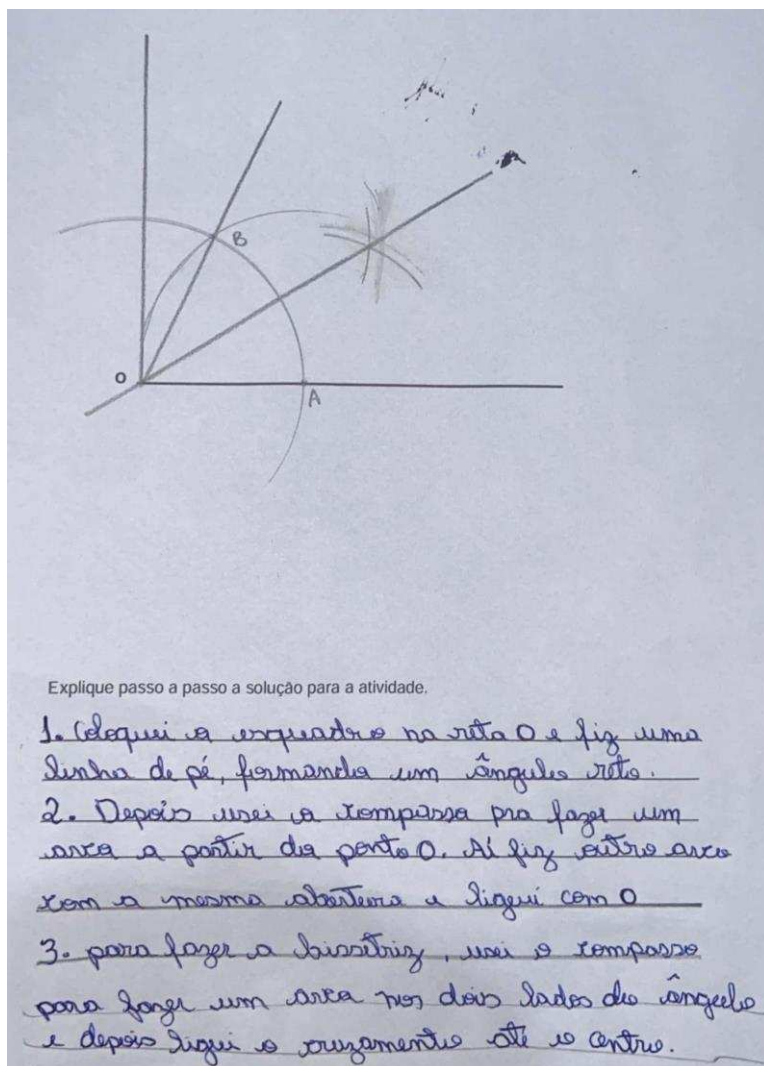 B
O
A
Explique passo a passo a solução para a atividade.
1. Coloquei o esquadro na reta O e fiz uma
linha de pé, formando um ângulo reto.
2. Depois usei o compasso pra fazer um
arco a partir do ponto O. Aí fiz outro arco
com a mesma abertura e liguei com O
3. para fazer a bissetriz, usei o compasso
para fazer um arco nos dois lados do ângulo
e depois liguei o cruzamento até o centro.